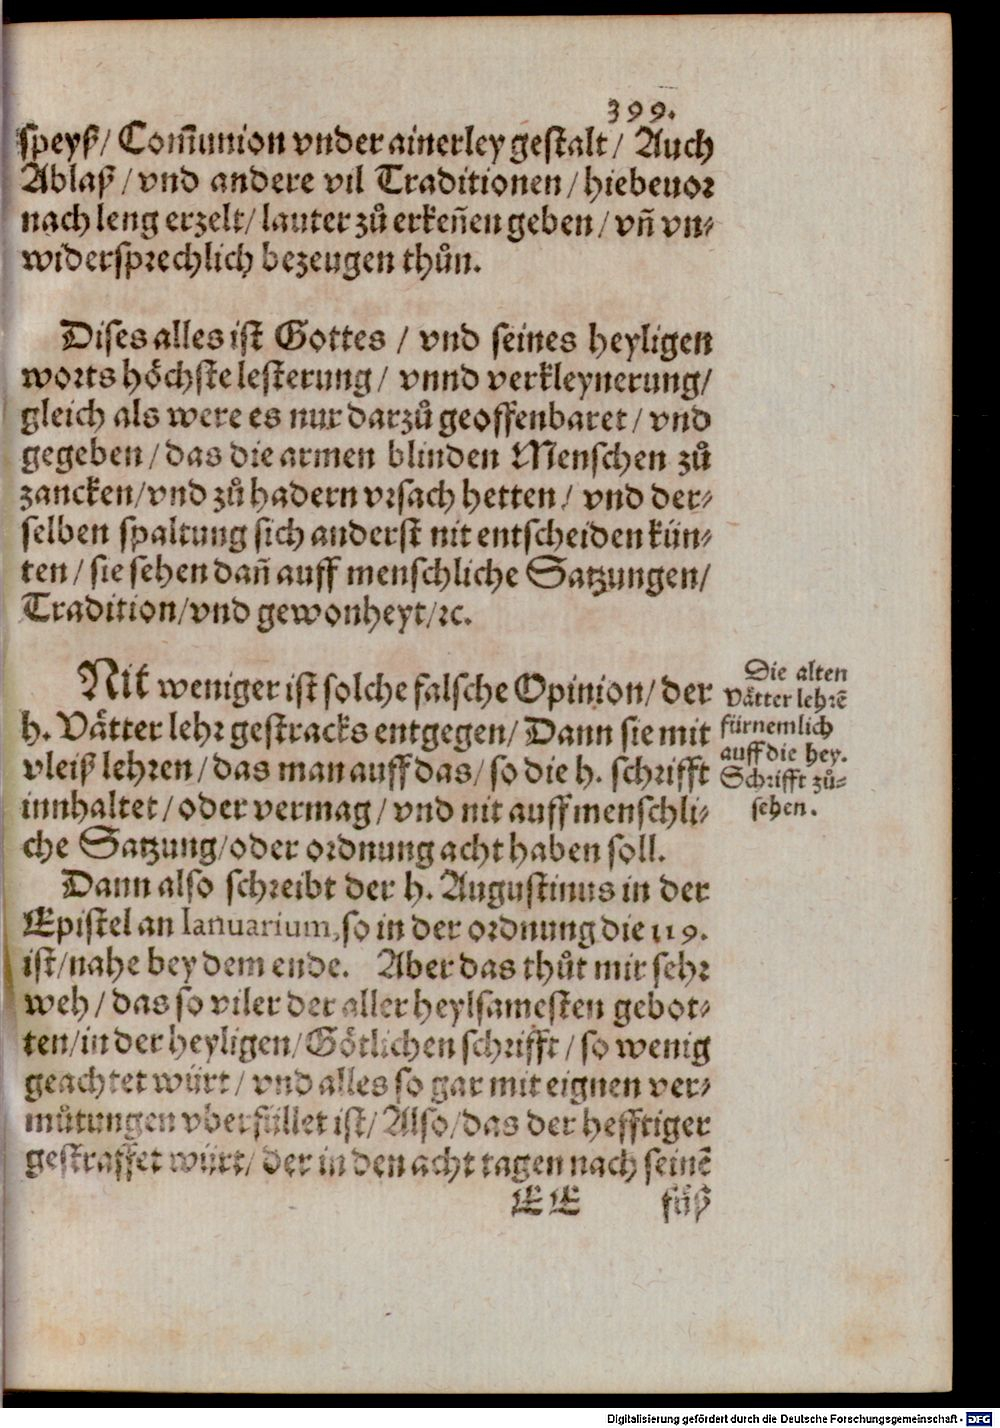 399.
speyß/ Com̃union vnder ainerley gestalt/ Auch
Ablaß/ vnd andere vil Traditionen/ hiebeuor
nach leng erzelt/ lauter zů erkeñen geben/ vñ vn-
widersprechlich bezeugen thůn.
Dises alles ist Gottes / vnd seines heyligen
worts höchste lesterung/ vnnd verkleynerung/
gleich als were es nur darzů geoffenbaret/ vnd
gegeben/ das die armen blinden Menschen zů
zancken/ vnd zů hadern vrsach hetten/ vnd der-
selben spaltung sich anderst nit entscheiden kün-
ten/ sie sehen dañ auff menschliche Satzungen/
Tradition/ vnd gewonheyt/ ꝛc.
Nit weniger ist solche falsche Opinion/ der
h. Vätter lehr gestracks entgegen/ Dann sie mit
vleiß lehren/ das man auff das/ so die h. schrifft
innhaltet/ oder vermag/ vnd nit auff menschli-
che Satzung/ oder ordnung acht haben soll.
Die alten
Vätter lehrẽ
fürnemlich
auff die hey.
Schrifft zů-
sehen.
Dann also schreibt der h. Augustinus in der
Epistel an Ianuarium, so in der ordnung die 119.
ist/ nahe bey dem ende. Aber das thůt mir sehr
weh/ das so viler der aller heylsamesten gebot-
ten/ in der heyligen/ Götlichen schrifft/ so wenig
geachtet würt/ vnd alles so gar mit eignen ver-
můtungen vberfüllet ist/ Also/ das der hefftiger
gestraffet würt/ der in den acht tagen nach seinẽ
EE füß
Digitalisierung gefördert durch die Deutsche Forschungsgemeinschaft - DFG